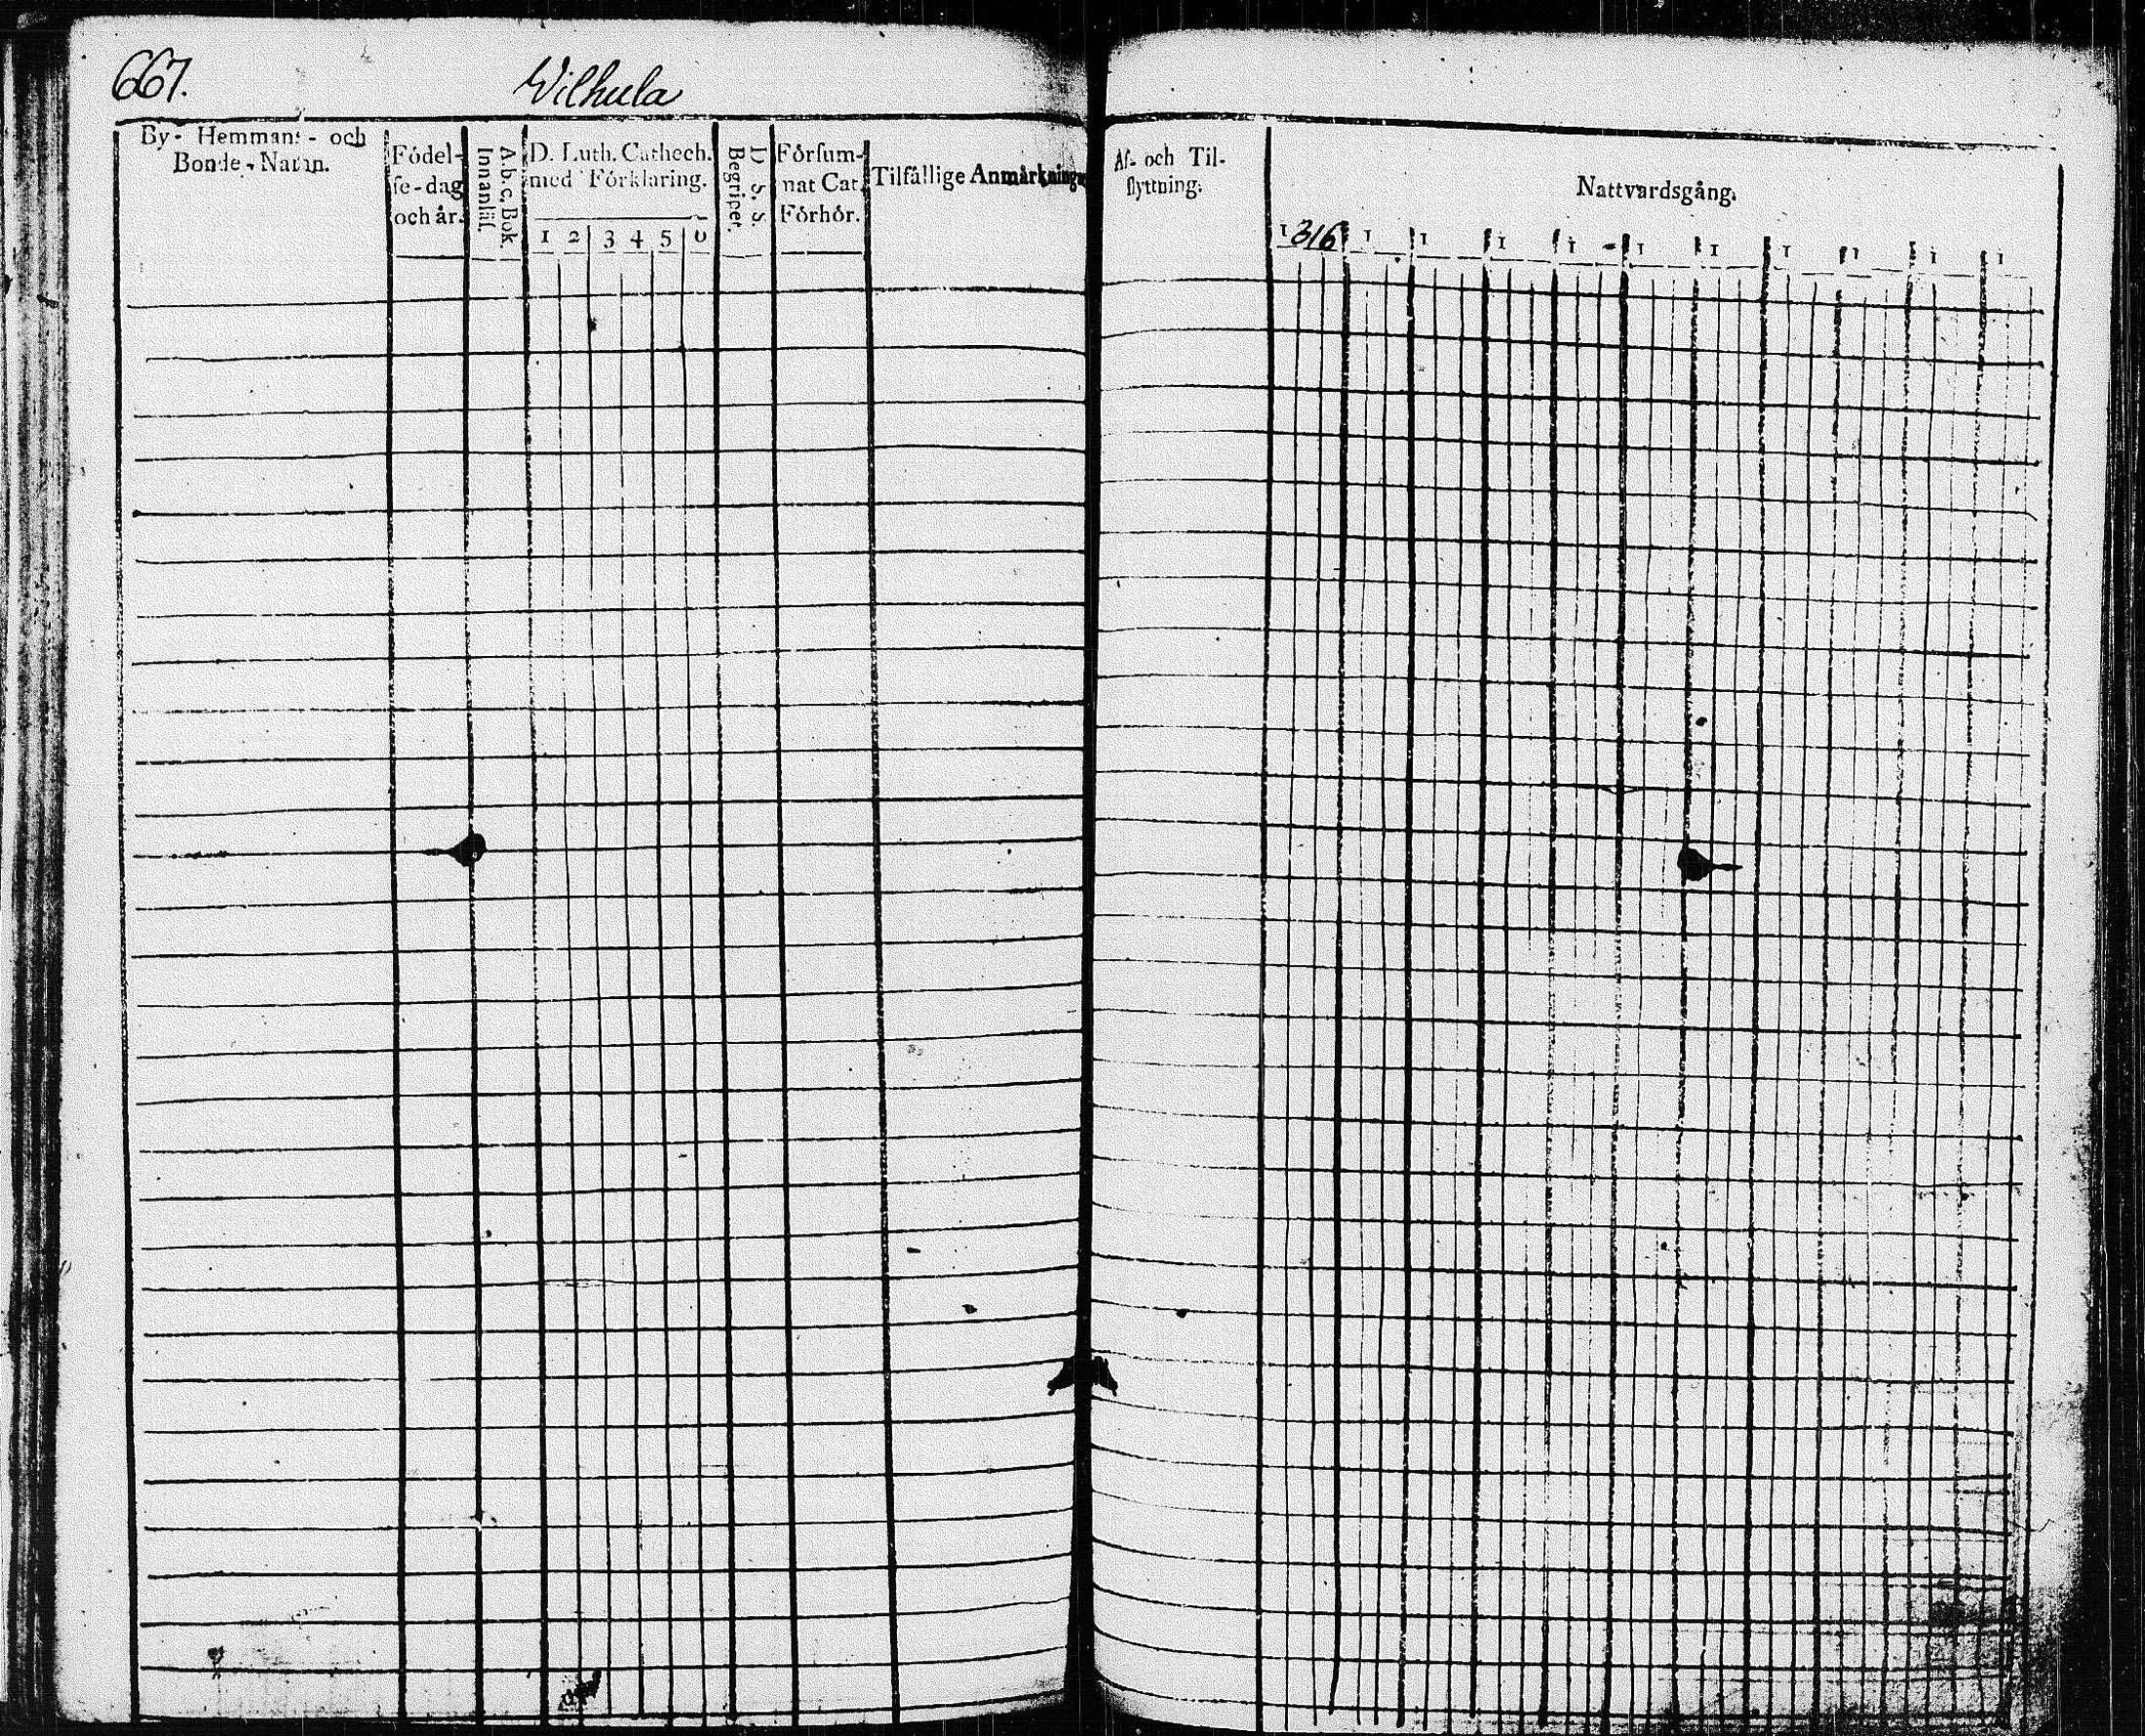 667.
Wilhula
By- Hemmans- och
Bonde-Namn.
Födel-
se-dag
och år.
A.b.c. Bok.
Innanläs.
D. Luth. Cathech.
med Förklaring.
1 2 3 4 5 6
D. S. S.
Begriper.
Försum-
nat Cat.
Förhör.
Tilfällige Anmärkningar
Af- och Til-
flyttning.
Nattvardsgång.
1 316 1 1 1 1 1 1 1 1 1 1